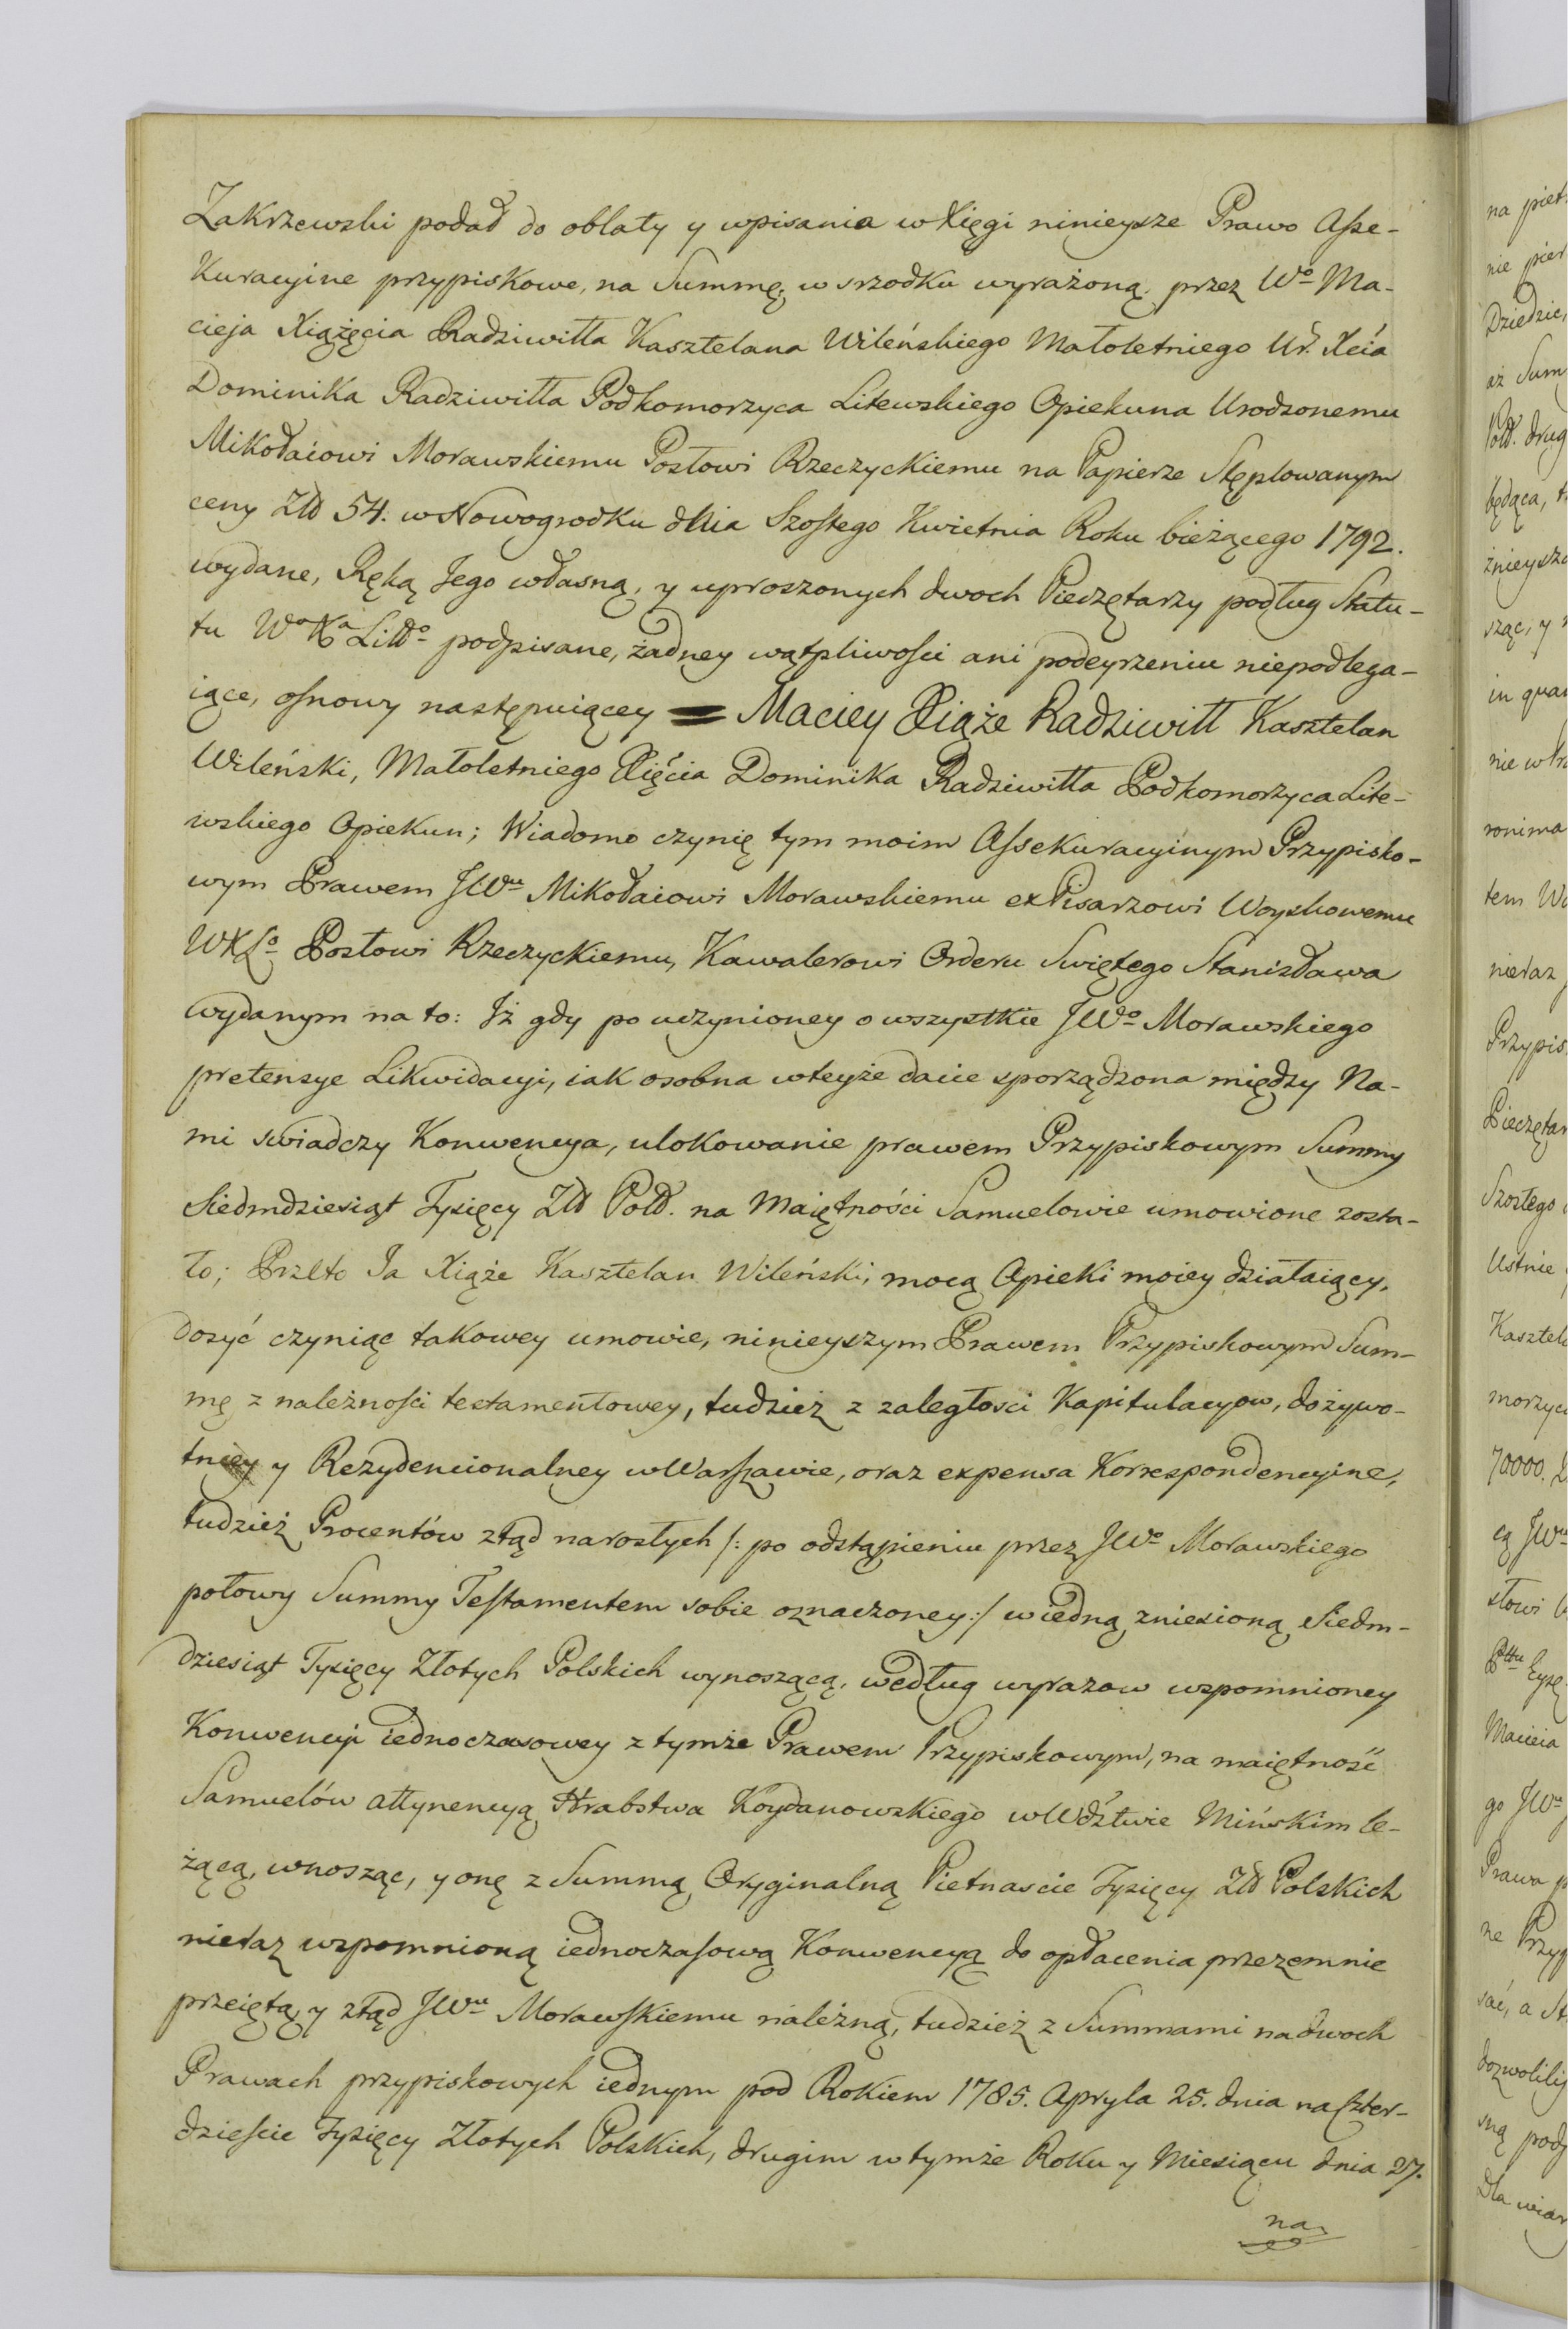 Zakrzewski podał do oblaty y wpisania w Xięgi ninieysze Prawo Asse-
kuracyine przypiskowe, na Summę w srzodku wyrażoną, przez Wo Ma-
cieja Xiążęcia Radziwiłła Kasztelana Wileńskiego Małoletniego Ur. Xcia
Dominika Radziwiłła Podkomorzyca Litewskiego Opiekuna Urodzonemu
Mikołaiowi Morawskiemu Posłowi Rzeczyckiemu na Papierze Stęplowanym
ceny Złł 54. w Nowogrodku dnia Szostego Kwietnia Roku bieżącego 1792.
wydane, Ręką Jego własną, y uproszonych dwoch Pieczętarzy podług Statu-
tu Wo Xa Litto podpisane, żadney wątpliwości ani podeyrzeniu niepodlega-
iące, osnowy następuiącey = Maciey Xiąże Radziwiłł Kasztelan
Wileński, Małoletniego Xięcia Dominika Radziwiłła Podkomorzyca Lite-
wskiego Opiekun; Wiadomo czynię tym moim Assekuracyinym Przypisko-
wym Prawem JWu Mikołaiowi Morawskiemu exPisarzowi Woyskowemu
WXLo Posłowi Rzeczyckiemu, Kawalerowi Orderu Swiętego Stanisława
wydanym na to: Iż gdy po uczynioney o wszystkie JWo Morawskiego
pretensye Likwidacyi, iak osobna wteyże dacie sporządzona między Na-
mi swiadczy Konwencya, ulokowanie prawem Przypiskowym Summy
Siedmdziesiąt Tysięcy Złł Poll. na Maiętności Samuelowie umowione zosta-
ło; Przeto Ja Xiąże Kasztelan Wileński, mocą Opieki moiey działaiący,
dosyć czyniąc takowey umowie, ninieyszym Prawem Przypiskowym Sum-
mę z należności testamentowey, tudzież z zaległosci Kapitulacyow, dożywo-
tniey y Rezydencionalney w Warszawie, oraz expensa Korrespondencyine,
tudzież Procentów ztąd narosłych /: po odstąpieniu przez JWo Morawskiego
połowy Summy Testamentem sobie oznaczoney :/ wiedną zniesioną Siedm-
dziesiąt Tysięcy Złotych Polskich wynoszącą, według wyrazow wspomnioney
Konwencyi iednoczasowey z tymże Prawem Przypiskowym, na maiętność
Samuelów attynencyą Hrabstwa Koydanowskiego w Wdztwie Mińskim le-
żącą, wnosząc, y onę z Summą Oryginalną Pietnascie Tysięcy Złł Polskich
nieraz wspomnioną iednoczasową Konwencyą do opłacenia przezemnie
przeiętą, y ztąd JWu Morawskiemu należną, tudzież z Summami na dwoch
Prawach przypiskowych iednym pod Rokiem 1785. Apryla 25. dnia na Czter-
dzieście Tysięcy Złotych Polskich, drugim w tymże Roku y Miesiącu dnia 27.
na